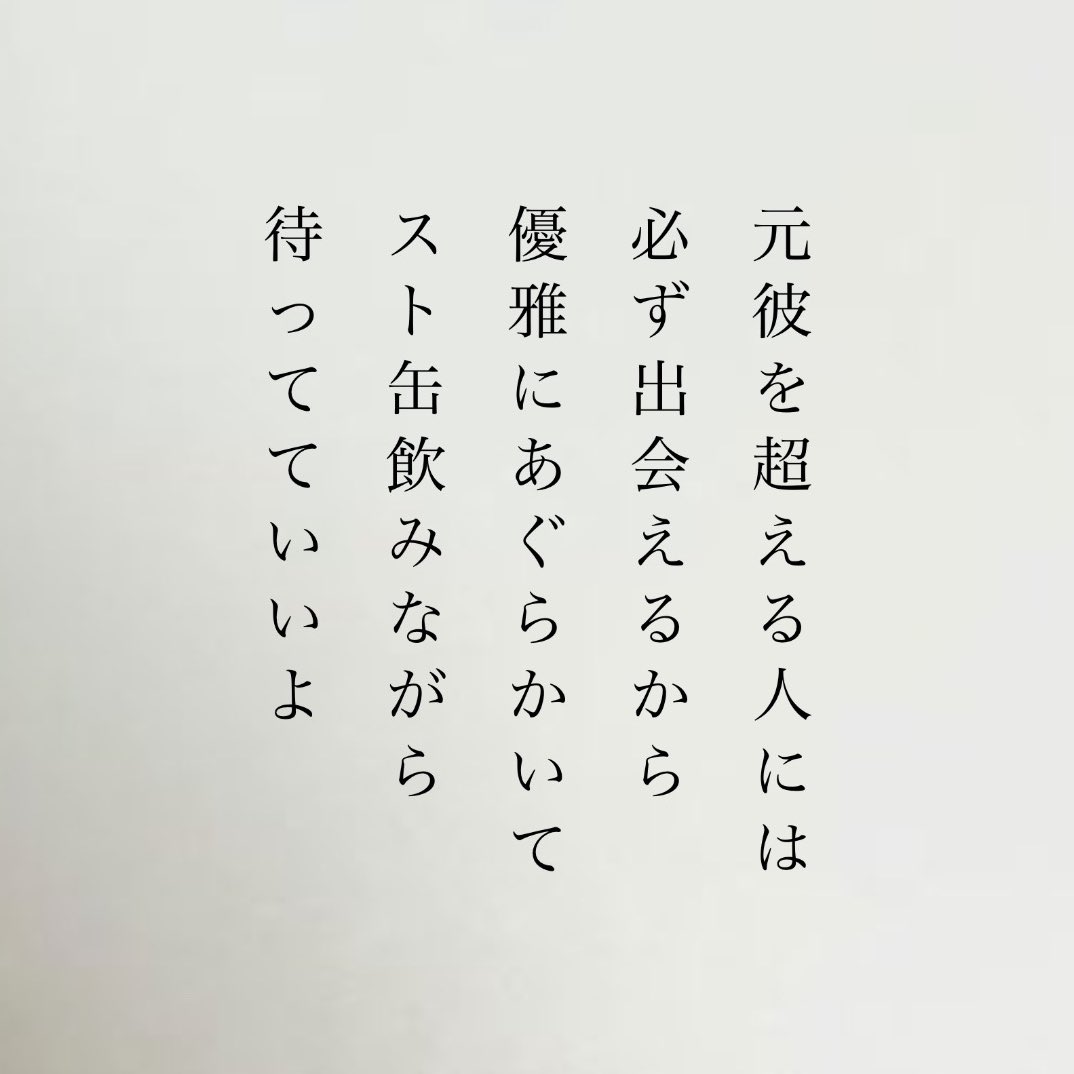 元彼を超える人には
必ず出会えるから
優雅にあぐらかいて
スト缶飲みながら
待ってていいよ